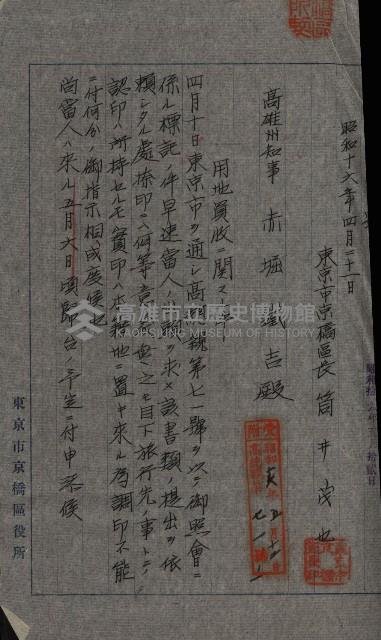 昭和十六年四月二十二日
東京市京橋區長 筒井茂也
高雄州知事 赤堀鐵吉殿
用地買收ニ関スル件
四月十日東京市ヲ通シ高 第七一號ヲ以テ御照會ニ
係ル標記ノ件早速當人ノ出頭ヲ求メ該書類ノ提出ヲ依
頼シタル處捺印ハ何等 之モ目下旅行先ノ事トテ
認印ハ所持セルモ實印ハ本籍地ニ置キ來ル為調印不能
ニ付何分ノ御指示相成度候也
尚當人ハ來ル五月六日頃歸台ノ予定ニ付申添候
東京市京橋區役所
高雄市立歷史博物館
KAOHSIUNG MUSEUM OF HISTORY